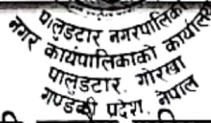 पालुङटार नगरपालिका
नगर कार्यपालिकाको कार्यालय
पालुङटार, गोरखा
गण्डकी प्रदेश, नेपाल